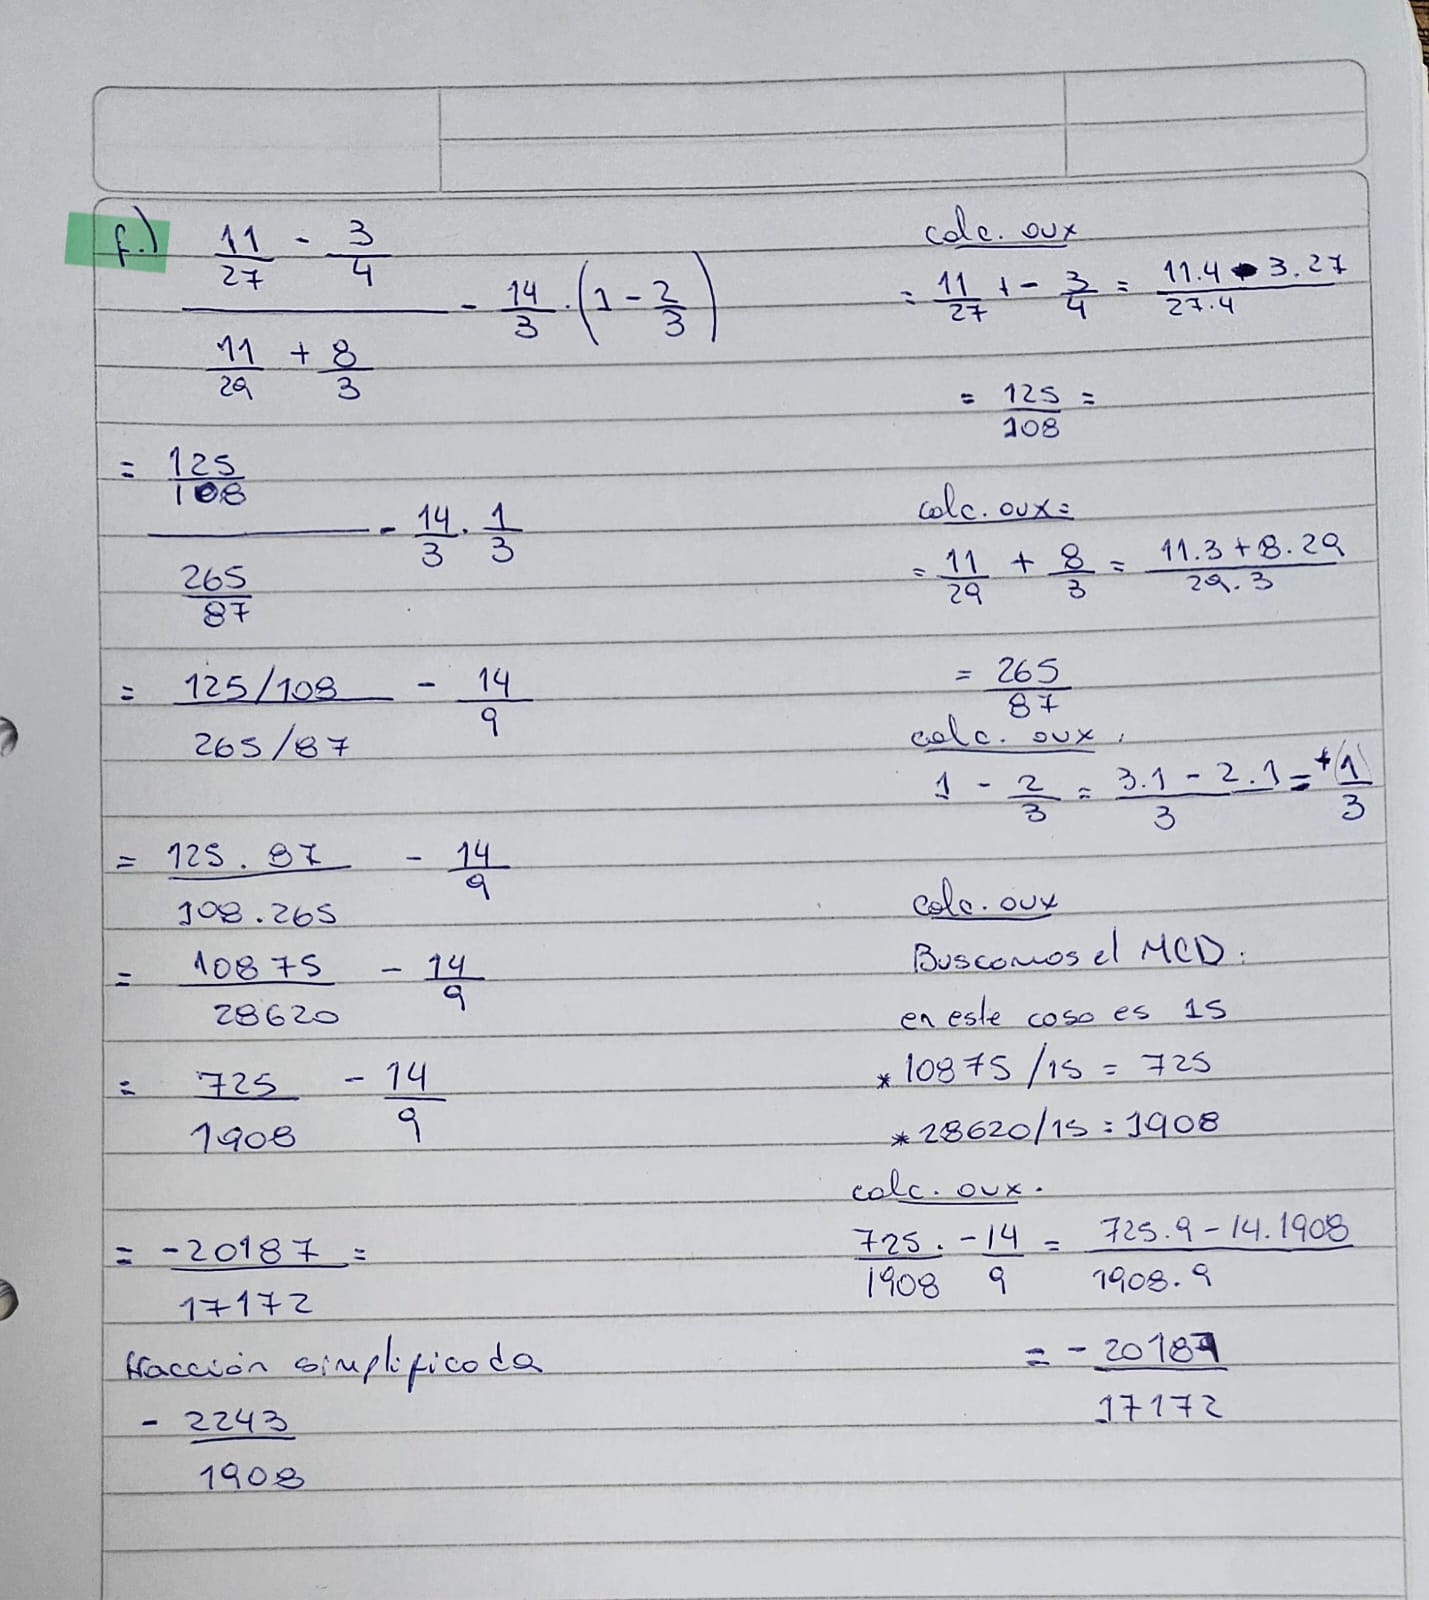 f.) 11/27 - 3/4
――― - 14/3 · (1 - 2/3)
11/29 + 8/3
= 125/108
――― - 14/3 · 1/3
265/87
= 125/108 - 14/9
265/87
= 125 . 87 / 108 . 265 - 14/9
= 10875/28620 - 14/9
= 725/1908 - 14/9
= -20187/17172 =
fracción simplificada
- 2243/1908
calc. aux
= 11/27 + - 3/4 = 11.4 - 3.27 / 27.4
= 125/108 =
calc. aux =
= 11/29 + 8/3 = 11.3 + 8.29 / 29.3
= 265/87
calc. aux.
1 - 2/3 = 3.1 - 2.1 / 3 = + 1/3
calc. aux
Buscamos el MCD:
en este caso es 15
* 10875/15 = 725
* 28620/15 = 1908
calc. aux.
725/1908 . - 14/9 = 725.9 - 14.1908 / 1908.9
= - 20187/17172